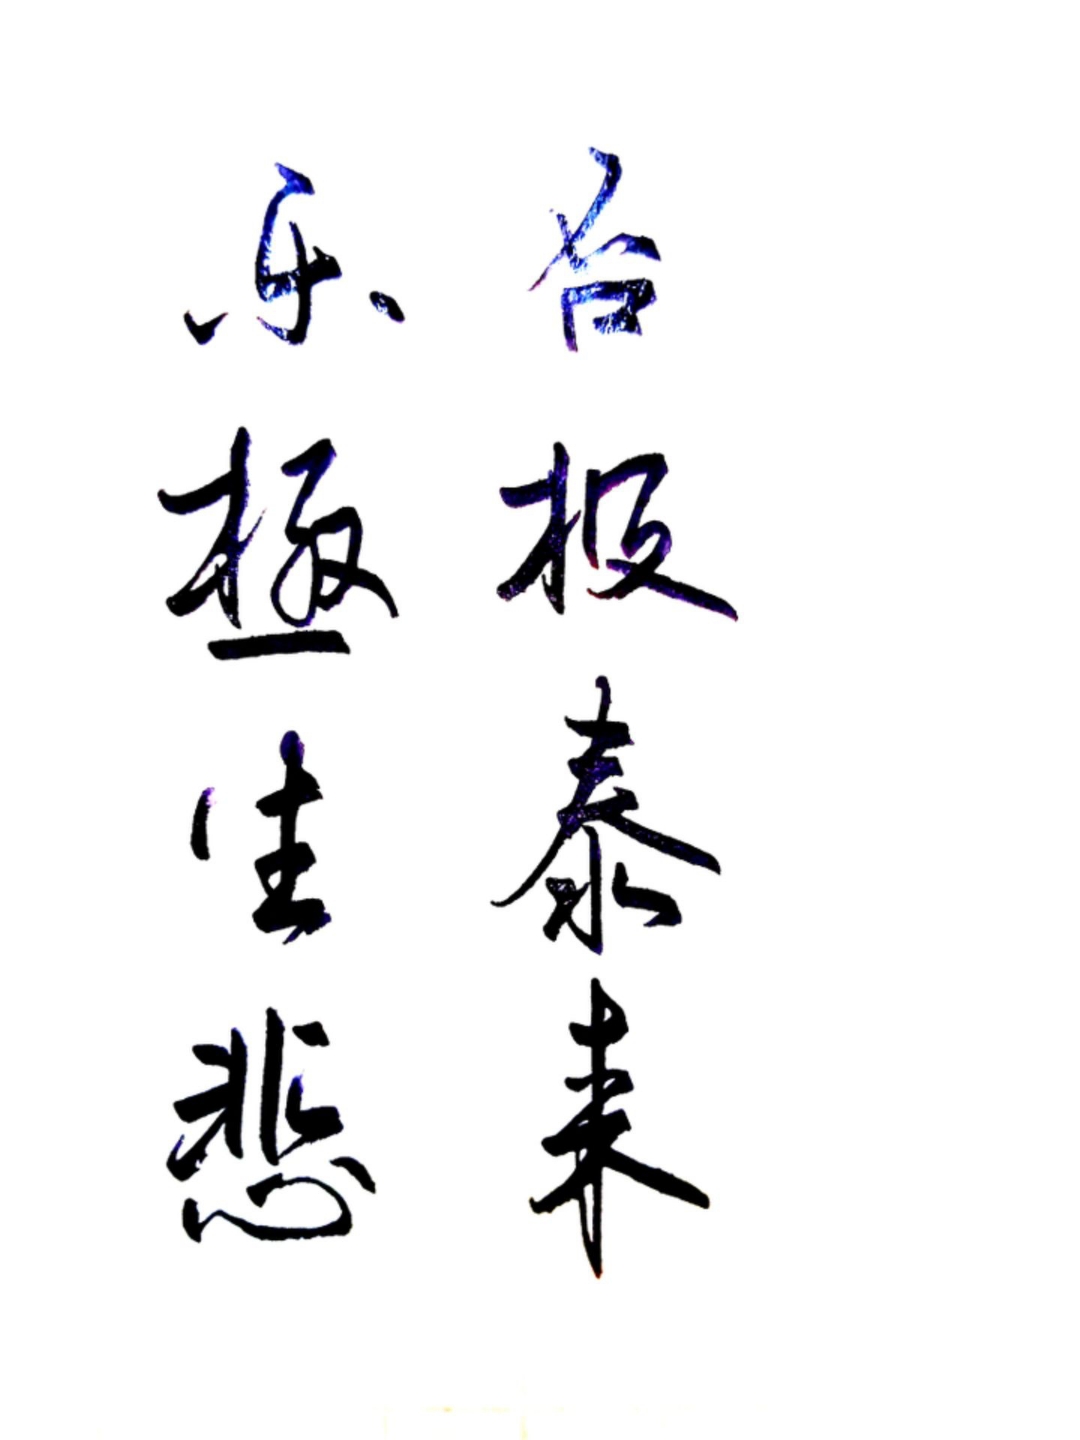 否极泰来
乐极生悲